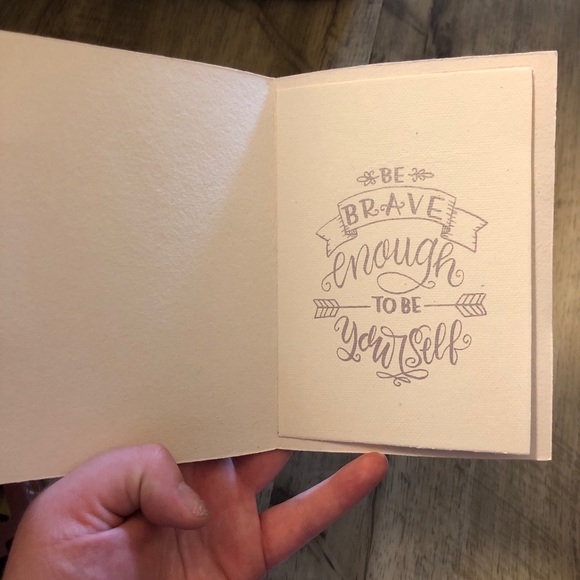 BE
BRAVE
enough
TO BE
Yourself